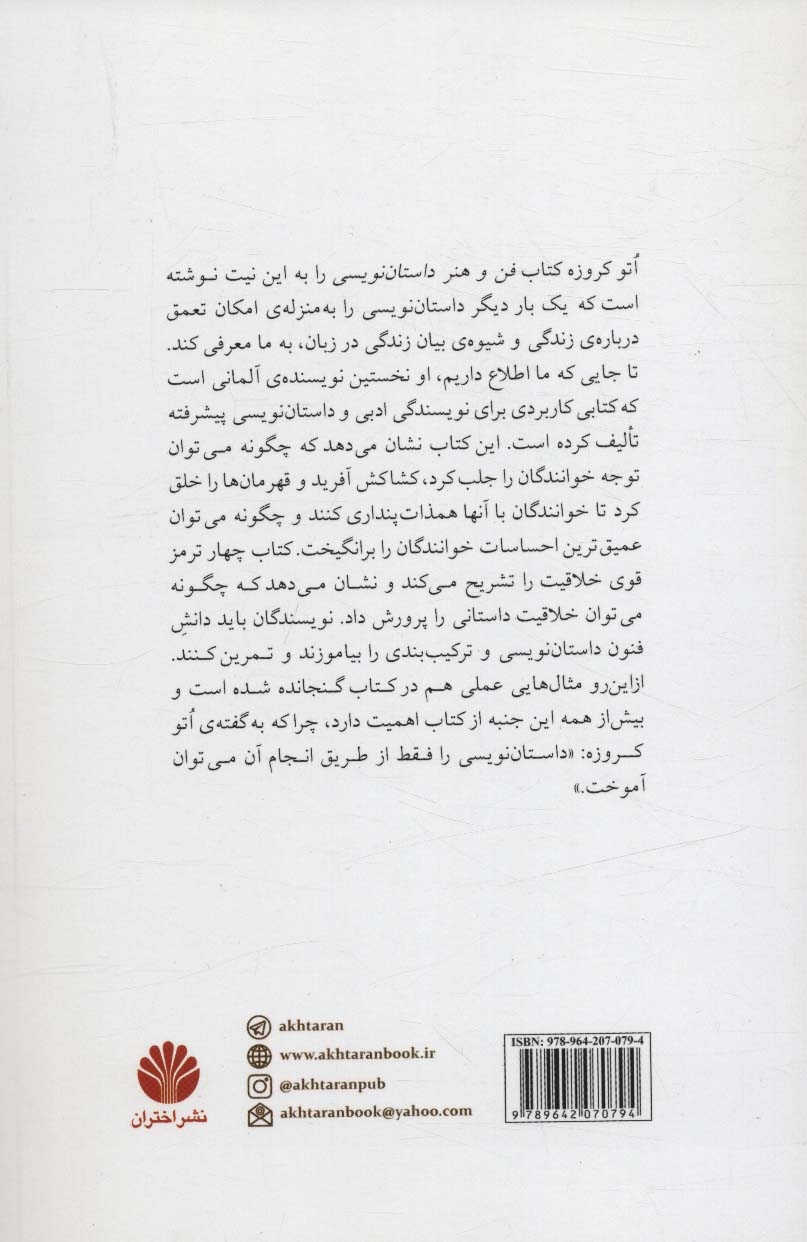 اُتو کروزه کتاب فن و هنر داستان‌نویسی را به این نیت نوشته
است که یک بار دیگر داستان‌نویسی را به‌منزله‌ی امکان تعمق
درباره‌ی زندگی و شیوه‌ی بیان زندگی در زبان، به ما معرفی کند.
تا جایی که ما اطلاع داریم، او نخستین نویسنده‌ی آلمانی است
که کتابی کاربردی برای نویسندگی ادبی و داستان‌نویسی پیشرفته
تألیف کرده است. این کتاب نشان می‌دهد که چگونه می‌توان
توجه خوانندگان را جلب کرد، کشاکش آفرید و قهرمان‌ها را خلق
کرد تا خوانندگان با آنها همذات‌پنداری کنند و چگونه می‌توان
عمیق‌ترین احساسات خوانندگان را برانگیخت. کتاب چهار ترمز
قوی خلاقیت را تشریح می‌کند و نشان می‌دهد که چگونه
می‌توان خلاقیت داستانی را پرورش داد. نویسندگان باید دانشِ
فنون داستان‌نویسی و ترکیب‌بندی را بیاموزند و تمرین کنند.
ازاین‌رو مثال‌هایی عملی هم در کتاب گنجانده شده است و
بیش‌از همه این جنبه از کتاب اهمیت دارد، چرا که به گفته‌ی اُتو
کروزه: «داستان‌نویسی را فقط از طریق انجام آن می‌توان
آموخت.»
akhtaran
www.akhtaranbook.ir
@akhtaranpub
akhtaranbook@yahoo.com
نشر اختران
ISBN: 978-964-207-079-4
9 789642 070794